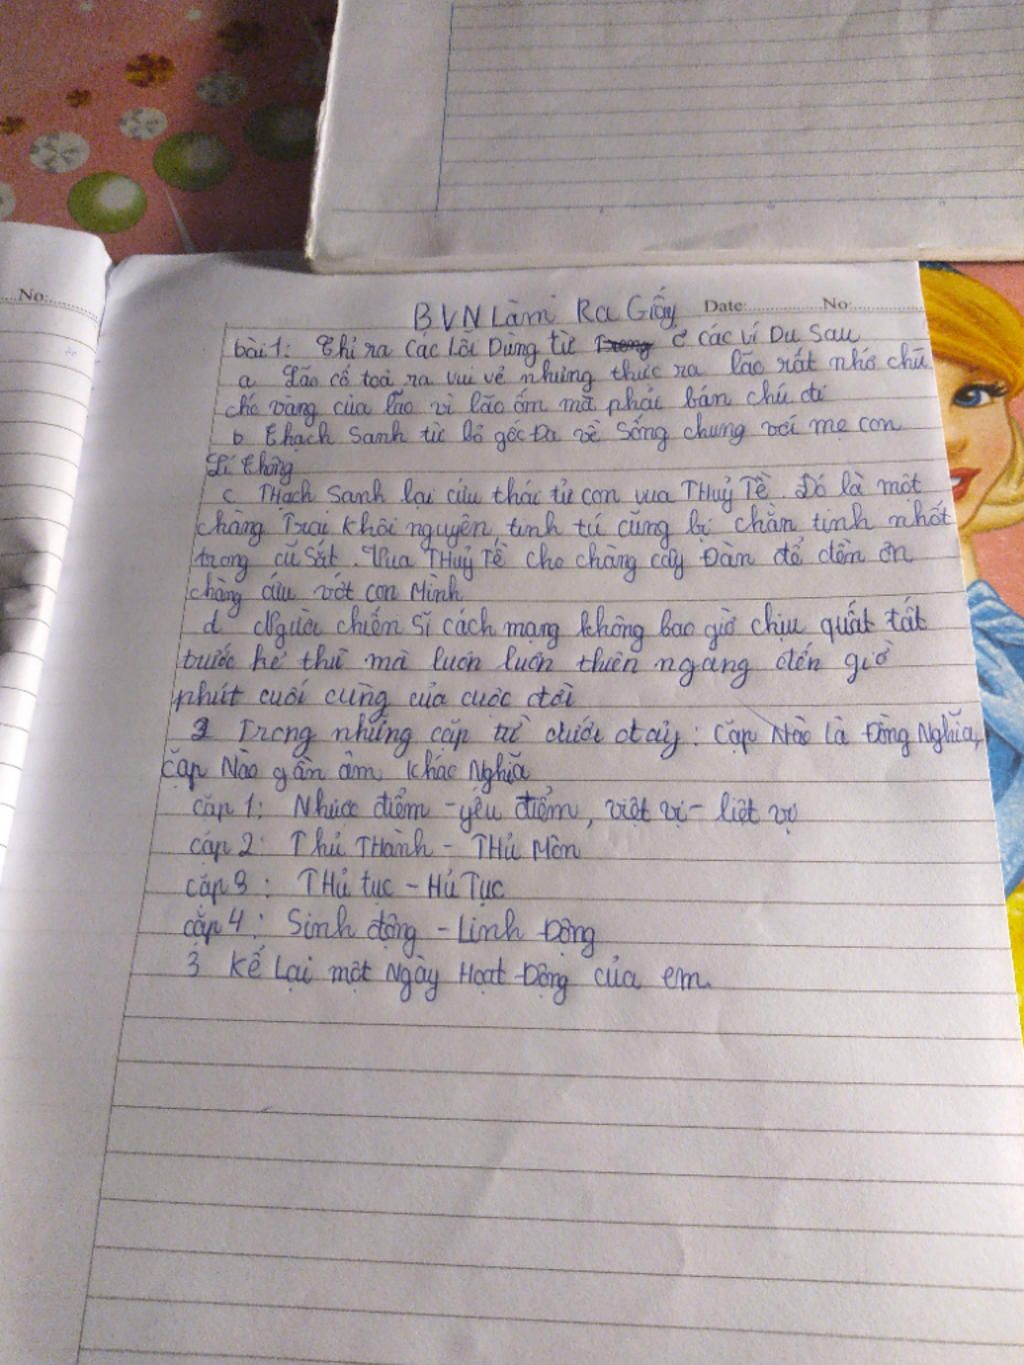 No:
BVN Làm Ra Giấy Date: No:
bài 1: Chỉ ra các Lỗi Dùng từ ở các ví Dụ Sau
a Lão cố toả ra vui vẻ nhưng thực ra lão rất nhớ chú
chó vàng của lão vì lão ốm mà phải bán chú đi
b Thạch Sanh từ bỏ gốc Đa về Sống chung với mẹ con
Lí Thông
c THạch Sanh lại cứu thái tử con vua THuỷ Tề. Đó là một
chàng Trai Khôi nguyên, tinh tú cũng bị chằn tinh nhốt
trong cũ Sắt. Vua THuỷ Tề cho chàng cây Đàn để đền ơn
chàng cứu vớt con Mình
d Người chiến Sĩ cách mạng không bao giờ chịu quất tất
trước kẻ thù mà luôn luôn thiên ngang đến giờ
phút cuối cùng của cuộc đời
2 Trong những cặp từ dưới đây: Cặp Nào Là Đồng Nghĩa,
Cặp Nào gần âm khác Nghĩa
cặp 1: Nhược điểm - yếu điểm, việt vị - liệt vị
cặp 2: Thủ THành - THủ Môn
cặp 3: THủ tục - Hủ Tục
cặp 4: Sinh động - Linh Động
3 Kể Lại một Ngày Hoạt Động của em.